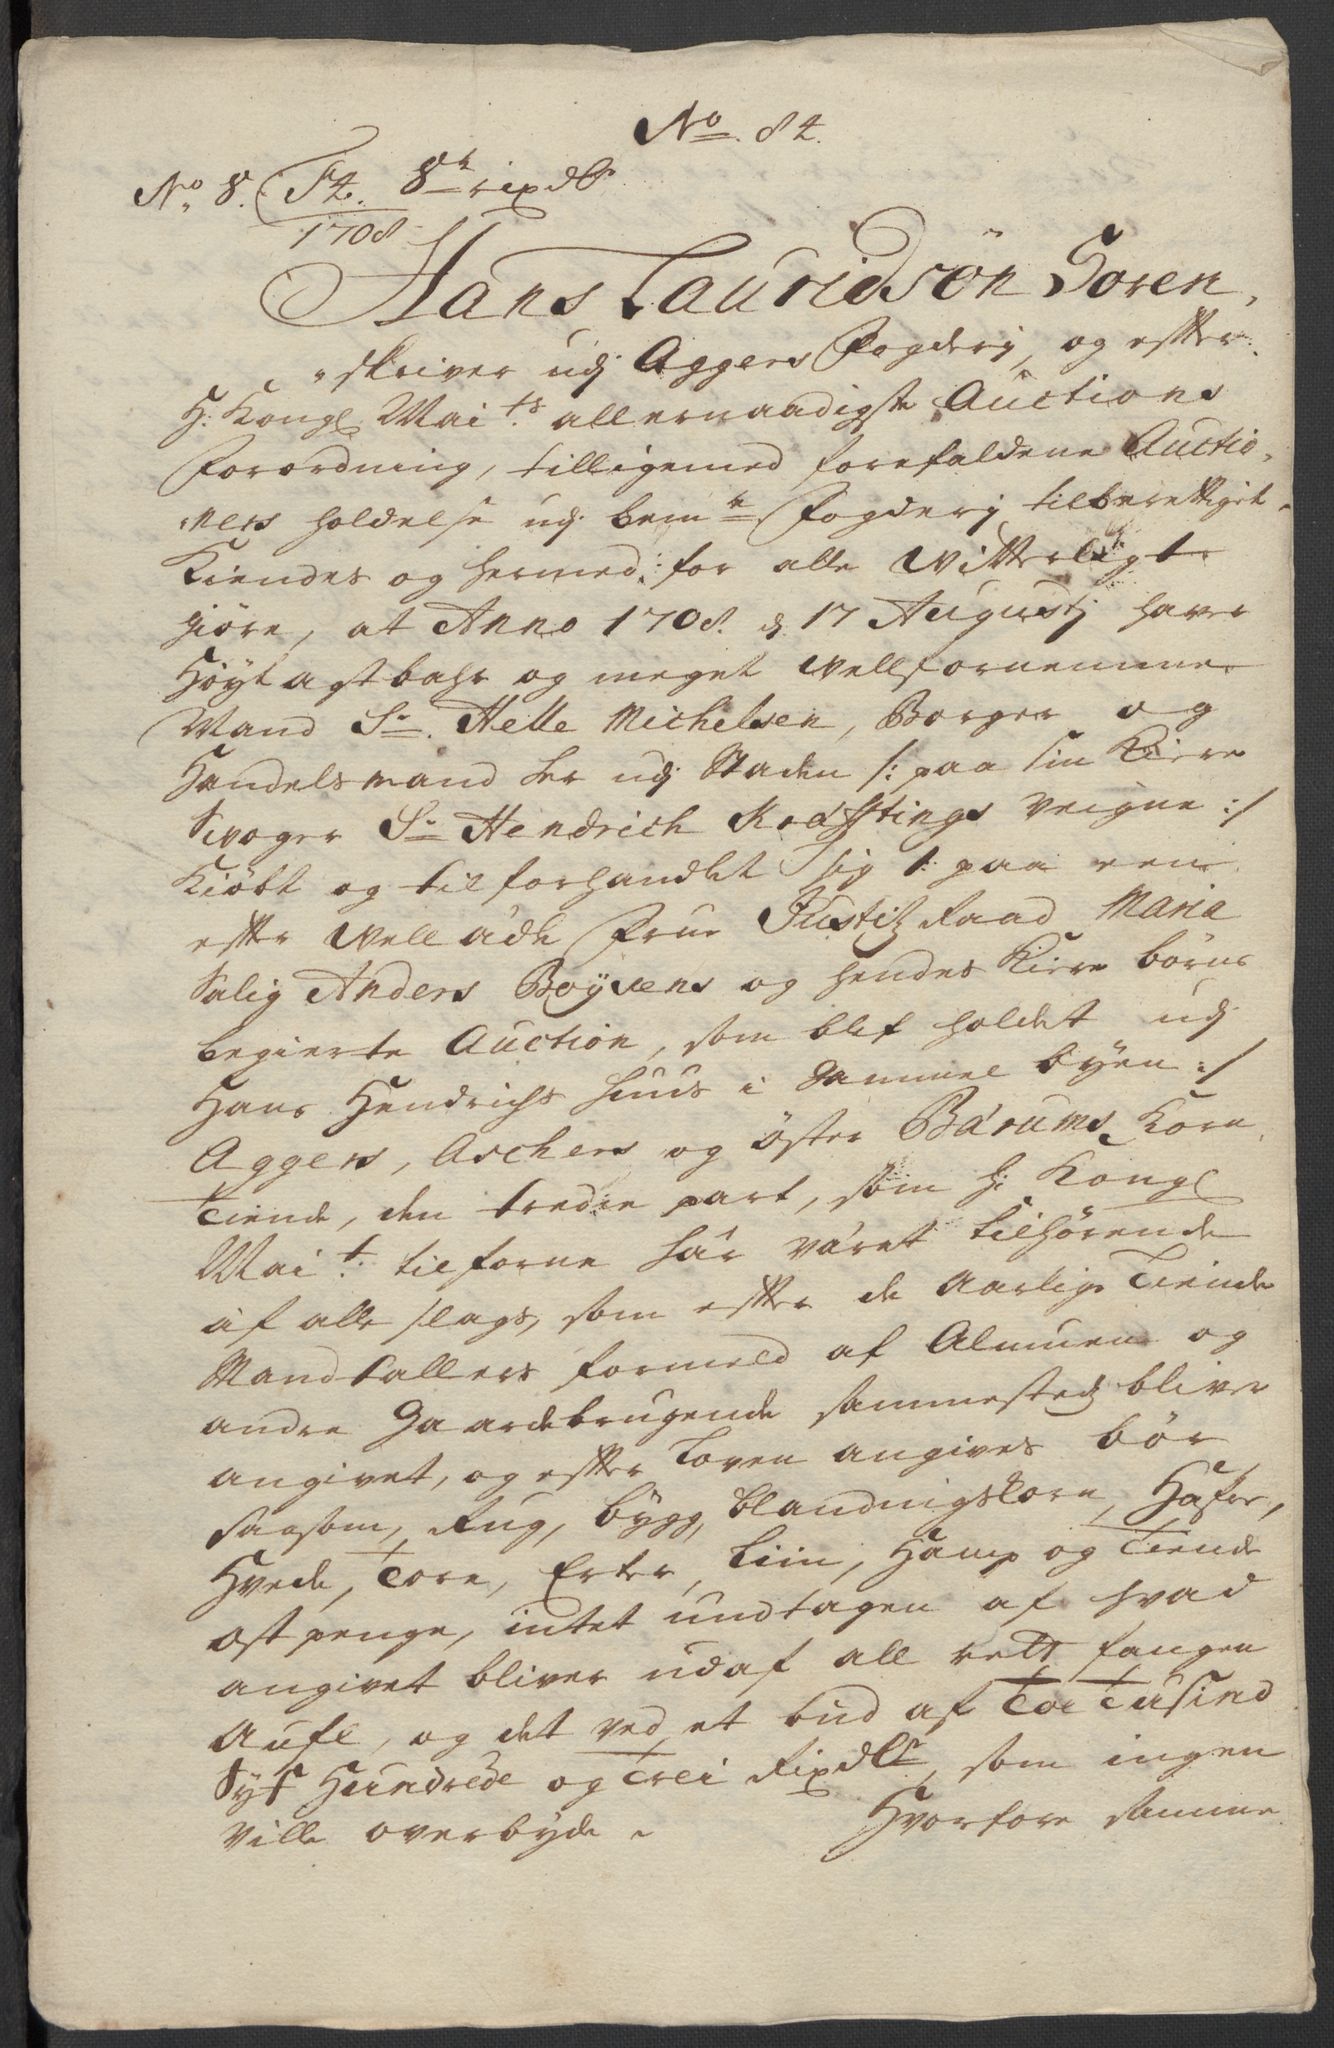 No. 84.
No. 8. F4. 8de rixdlr
1708
Hans Lauridsön Soren,
skriver udj Aggers Fogderj, og efter
H: Kongl Mai:ts allernaadigste Auctions
Forordning, tilligemed forefaldene Auctio,
ners holdelse udj bemte Fogderj tilberettiget
Kiendes og hermed: for alle Witterligt
giöre, at Anno 1708. d. 17 Augustj haver
Höyt agtbahr og meget Wellfornemme
Mand Sr. Helle Michelsen, Borger og
Handelsmand her udj Staden /: paa sin Kiere
Svoger Sr Hendrich Veigne :/
Kiöbt og tilforhandlet sig /: paa een
efter Well ädle Frue Justitz Raad Maria
Salig Anders Böyesens og hendes Kiere börns
begierte Auction, som blef holdet udj
Hans Hendrichs huus i Gammel byen :/
Aggers, Aschers og öster Bärums Korn
Tiende, den tredie part, som h: Kongl
Mai:t tilforne här väret tilhörende
af alle slags, som efter de Aarlige Tiende
Mandtallers formeld af Almuen og
andre Gaardebrugende sammestedz bliver
angivet, og efter Loven angives bör
saasom, Rug, bygg, blandningskorn, Hafre,
Hvede, Tore, Erter, Liin, Hamp og Tiende
ost penge, intet undtagen af hvad
angivet bliver udaf all rett fangen
Aufl, og det ved et bud af Toe Tusind
Syf Hundrede og Trei Rixdlr, som ingen
ville overbyde.
Hvorfore samme